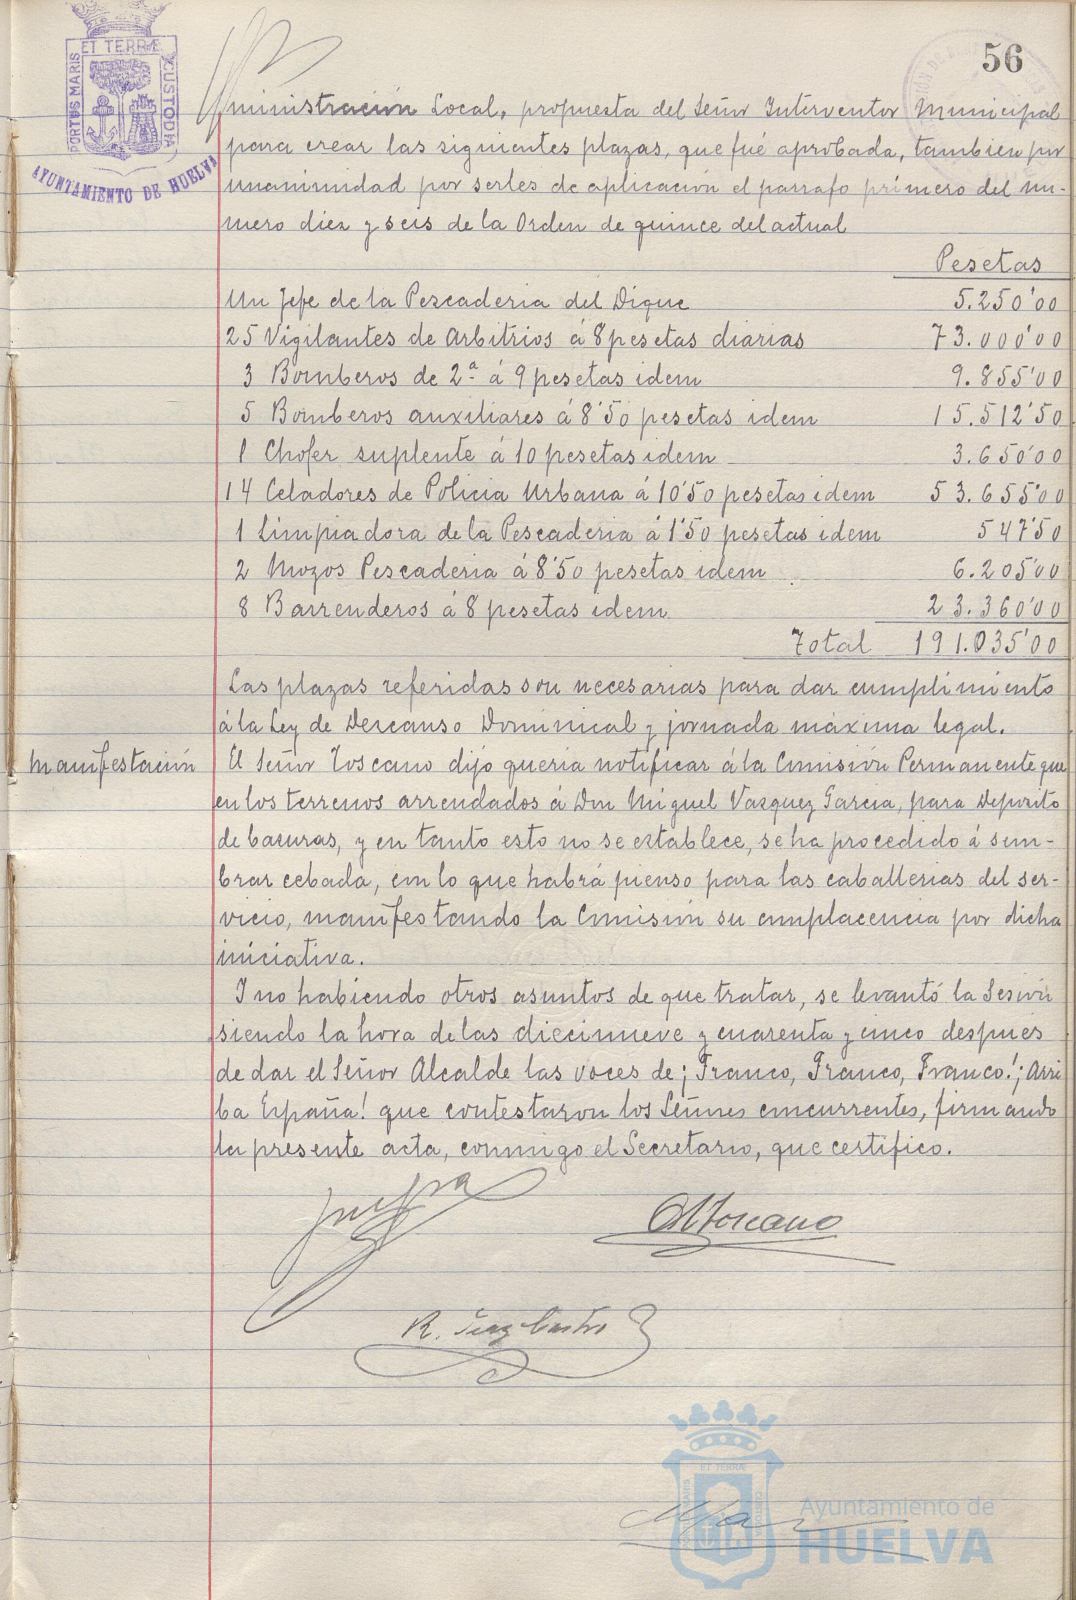 56
ET TERRÆ
PORTUS MARIS
CUSTODIA
AYUNTAMIENTO DE HUELVA
ministración Local, propuesta del Señor Interventor Municipal
para crear las siguientes plazas, que fué aprobada, tambien por
unanimidad por serles de aplicación el parrafo primero del nu-
mero diez y seis de la Orden de quince del actual
Pesetas
Un Jefe de la Pescaderia del Dique 5.250'00
25 Vigilantes de Arbitrios á 8 pesetas diarias 73.000'00
3 Bomberos de 2ª á 9 pesetas idem 9.855'00
5 Bomberos auxiliares á 8'50 pesetas idem 15.512'50
1 Chofer suplente á 10 pesetas idem 3.650'00
14 Celadores de Policia Urbana á 10'50 pesetas idem 53.655'00
1 Limpiadora de la Pescaderia á 1'50 pesetas idem 547'50
2 Mozos Pescaderia á 8'50 pesetas idem 6.205'00
8 Barrenderos á 8 pesetas idem 23.360'00
Total 191.035'00
Las plazas referidas son necesarias para dar cumplimiento
á la Ley de Descanso Dominical y jornada máxima legal.
Manifestación
El Señor Toscano dijo queria notificar á la Comisión Permanente que
en los terrenos arrendados á Don Miguel Vazquez Garcia, para Deposito
de basuras, y en tanto esto no se establece, se ha procedido á sem-
brar cebada, con lo que habrá pienso para las caballerias del ser-
vicio, manifestando la Comisión su complacencia por dicha
iniciativa.
Y no habiendo otros asuntos de que tratar, se levantó la Sesión
siendo la hora de las diecinueve y cuarenta y cinco despues
de dar el Señor Alcalde las voces de ¡Franco, Franco, Franco! ¡Arri
ba España! que contestaron los Señores concurrentes, firmando
la presente acta, conmigo el Secretario, que certifico.
Toscano
Ayuntamiento de
HUELVA